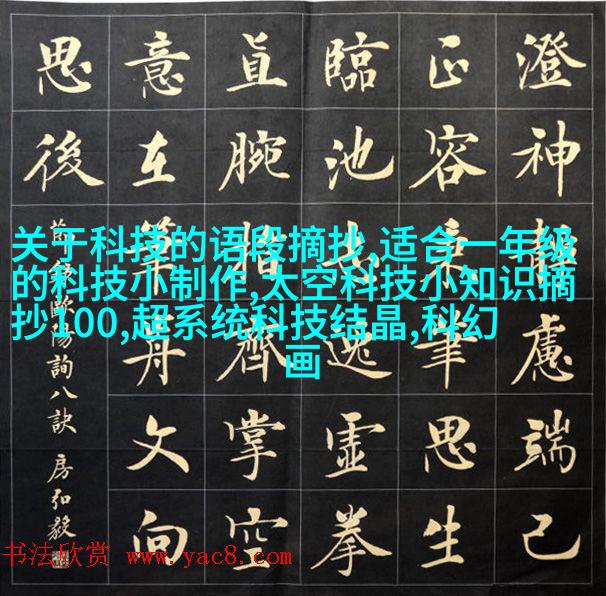 澄神靜慮端己
正容秉筆思生
臨池志逸虛拳
直腕指齊掌空
意在筆前文向
思後
節錄歐陽詢八訣 房弘毅
关于科技的语段摘抄,适合一年级
的科技小制作,太空科技小知识摘
抄100,超系统科技结晶,科幻
画
书法欣赏 www.yac8.com